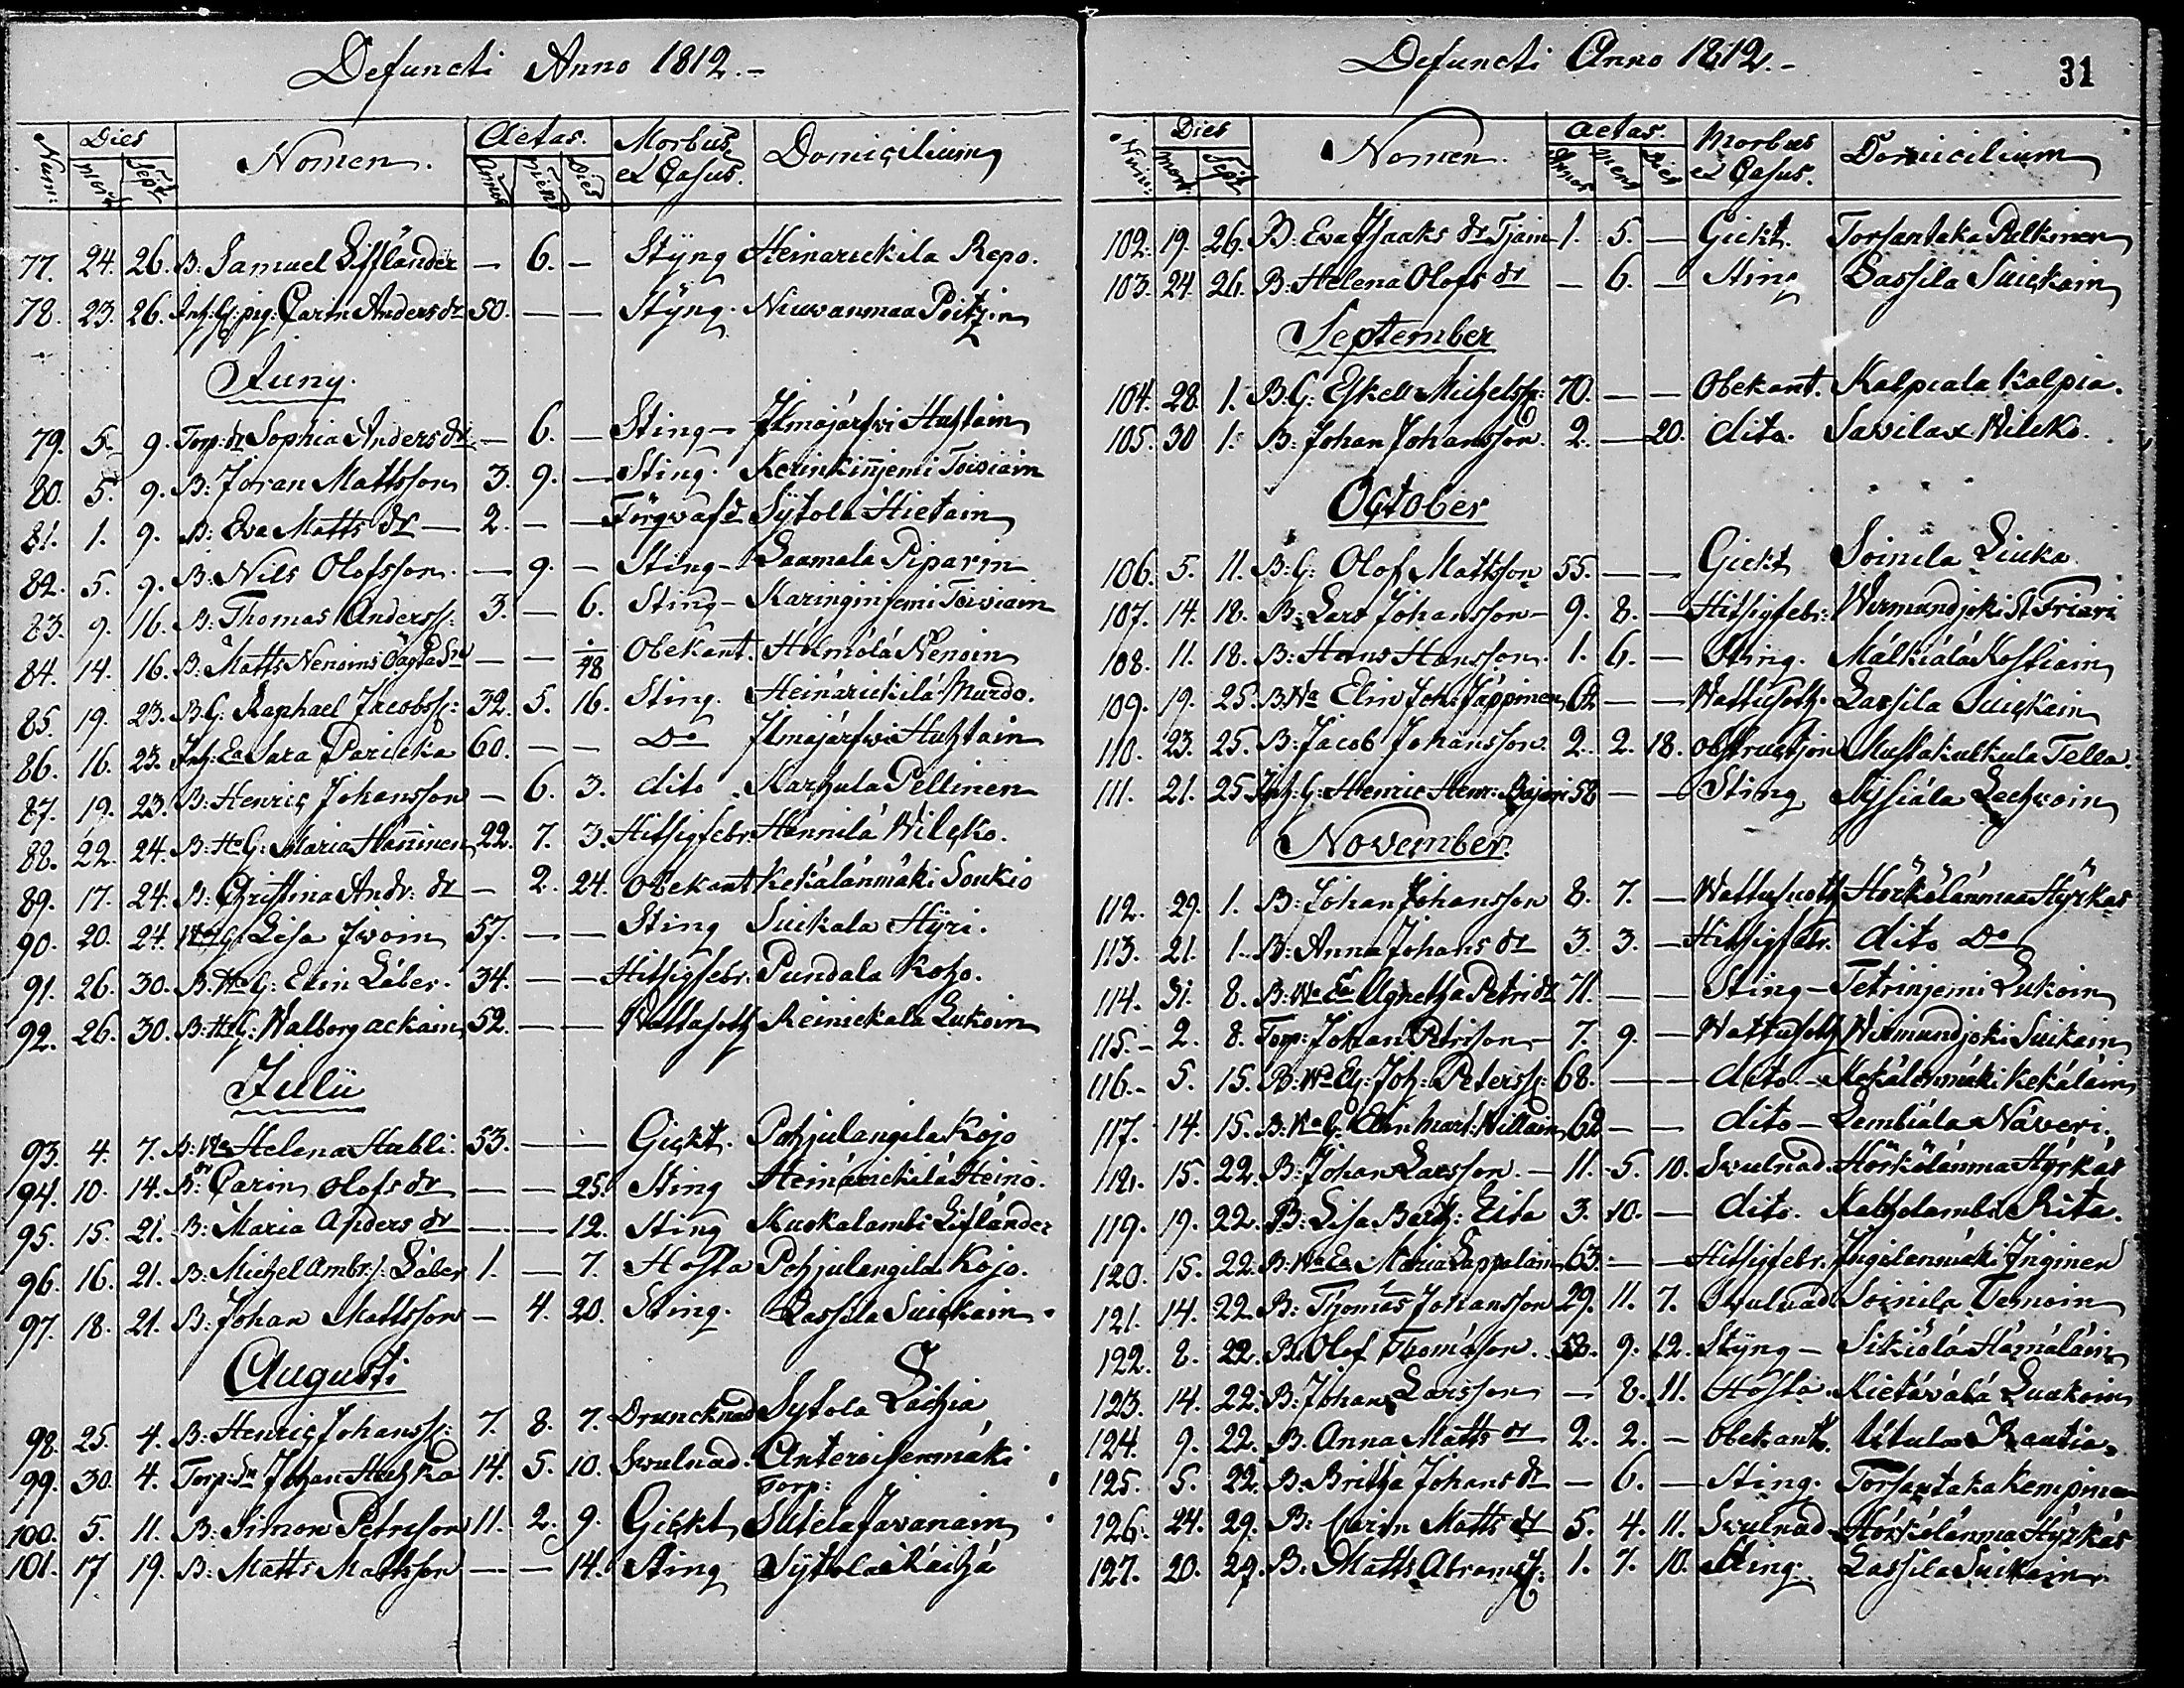 Defuncti Anno 1812.-
Num: Dies Mort: Sept: Nomen. Aetas. Annos Mens Dies Morbus et Casus. Domicilium
77. 24. 26. B: Samuel Lifflander — 6. — Styng Heinarickila Repo.
78. 23. 26. Inh: G: pig: Carin Anders dr 50. — — Styng. Niuvanmaa Poitzin
Juny.
79. 5. 9. Torp: dr Sophia Anders dr — 6. — Sting — Ilmajärfvi Huhtain
80. 5. 9. B: Joran Mattsson 3. 9. — Sting. Kerinkinjemi Toiviain
81. 1. 9. B: Eva Matts dr — 2. — — Sytola Hietain
82. 5. 9. B: Nils Olofsson. — 9. — Sting — Laamala Piparin
83. 9. 16. B: Thomas Anderss: 3. — 6. Sting — Karinginjemi Toiviain
84. 14. 16. B: Matts Nenoins — — 1/48 Obekant. Hölmölä Nenoin
85. 19. 23. B G: Raphael Jacobss: 32. 5. 16. Sting. Heinarickilä Murdo.
86. 16. 23. Inh: Ea Sara Paricka 60. — — Do Ilmajärfwi Huhtain
87. 19. 23. B: Henric Johansson — 6. 3. dito Karhula Pellinen
88. 22. 24. B: Ha G: Maria Hanninen 22. 7. 3. Hitsigfebr. Hannila Wilcko.
89. 17. 24. B: Christina Andr: dr — 2. 24. Obekant Kekälänmäki Soukio
90. 20. 24. G: Lisa Iwoin 57. — — Sting Suikala Hyri.
91. 26. 30. B: Ha G: Elin Läber. 34. — — Hitsigfebr. Pundala Koho.
92. 26. 30. B: Ha G: Walborg Ackain 52. — — Wattusoth Reinickala Lukoin
Julii
93. 4. 7. B: Wa Helena Stubli. 53. — — Gickt. Pohjulangila Kojo
94. 10. 14. B: Carin Olofs dr — — 25. Sting Heinärickilä Heino.
95. 15. 21. B: Maria Anders dr — — 12. Sting Kuokalambi Liflander
96. 16. 21. B: Michel Ambr:s. Läber 1. — 7. Hosta Pohjulangila Kojo.
97. 18. 21. B: Johan Mattsson — 4. 20. Sting. Lassila Suickain
Augusti
98. 25. 4. B: Henric Johanss: 7. 8. 7. Druncknad Sytola Laihia
99. 30. 4. Torp: Sn Johan 14. 5. 10. Swulnad. Anteroisenmäki Torp:
100. 5. 11. B: Simon Petrsson 11. 2. 9. Gickt Sutela Javanain
101. 17 19. B: Matts Mattsson — — 14. Sting Sytola Raihä
Defuncti Anno 1812.-
31
Num: Dies Mort: Sept: Nomen. Aetas. Annos Mens Dies Morbus et Casus. Domicilium
102. 19. 26. B: Eva Isaaks dr Tjäin 1. 5. — Gickt. Torsantaka Pulkinen
103. 24. 26. B: Helena Olofs dr — 6. — Sting Lassila Suickain
September
104. 28. 1. B: G: Eskell Michelss: 70. — — Obekant. Kalpiala Kalpia.
105. 30 1. B: Johan Johansson. 2. — 20. dito. Savilax Wilcko.
October
106. 5. 11. B: G: Olof Mattsson 55. — — Gickt Soinila Liuka
107. 14. 18. B: Lars Johansson — 9. 8. — Hitsigfebr: Wirmundjoki
108. 11. 18. B: Hans Hansson. 1. 6. — Sting. Mälkiälä Kostiain
109. 19. 25. B: Wa Elin Joh: Jäppinen 62 — — Wattusoth. Lassila Suickain
110. 23. 25. B: Jacob Johansson. 2. 2. 18. obstructjon Mustakulkula Tella.
111. 21. 25. Inh: G: Henric Henr: Bajari 58 — — Sting Nissiäla Lechwoin
November.
112. 29. 1. B: Johan Johansson 8. 7. — Wattusoth Hörkölänmaa Hyrkäs
113. 21. 1. B: Anna Johans dr 3. 3. — Hitsigfebr. dito Do
114. 31. 8. B: Wa Ea Agnetha Petri dr 71. — — Sting — Tetrinjemi Lukoin
115. — 2. 8. Torp: Johan Petrison — 7. 9. — Wattusoth Wirmundjoki Suikain
116. — 5. 15. B: Wd Eg: Joh: Peterss: 68. — — dito. — Kekälänmäki Kekäläin
117. 14. 15. B: Wa G: Elin Mart: Willain 62 — — dito — Lembiäla Näveri.
118. 15. 22. B: Johan Larsson. — 11. 5. 10. Swulnad. Hörkölänma Hyrkäs
119. 19. 22. B: Lisa Barth: Rita 3. 10. — dito. Katholambi Rita.
120. 15. 22. B: Wa Ea Maria Lappalain 63. — — Hitsigfebr. Ingilänmäki Inginen
121. 14. 22. B: Thomas Johansson 29. 11. 7. Swulnad Soinila Ternoin
122. 2. 22. B: Olof Thomasson. 58. 9. 12. Styng — Sikiölä Hämäläin
123. 14. 22. B: Johan Larsson — 8. 11. Hosta. Kietävälä Luukoin
124. 9. 22. B: Anna Matts dr 2. 2. — Obekant. Utula Rautia.
125. 5. 22. B: Britha Johans dr — 6. — Sting. Torsantaka Kempinen
126. 24. 29. B: Carin Matts dr 5. 4. 11. Swulnad Hörkölänma Hyrkäs
127. 20. 29. B: Matts Abramss: 1. 7. 10. Sting. Lassila Suikain